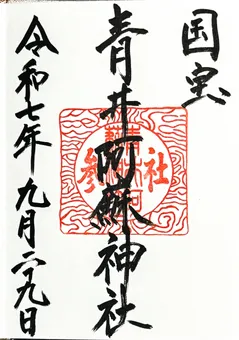 国宝
青井阿蘇神社
令和七年九月二十九日
社参